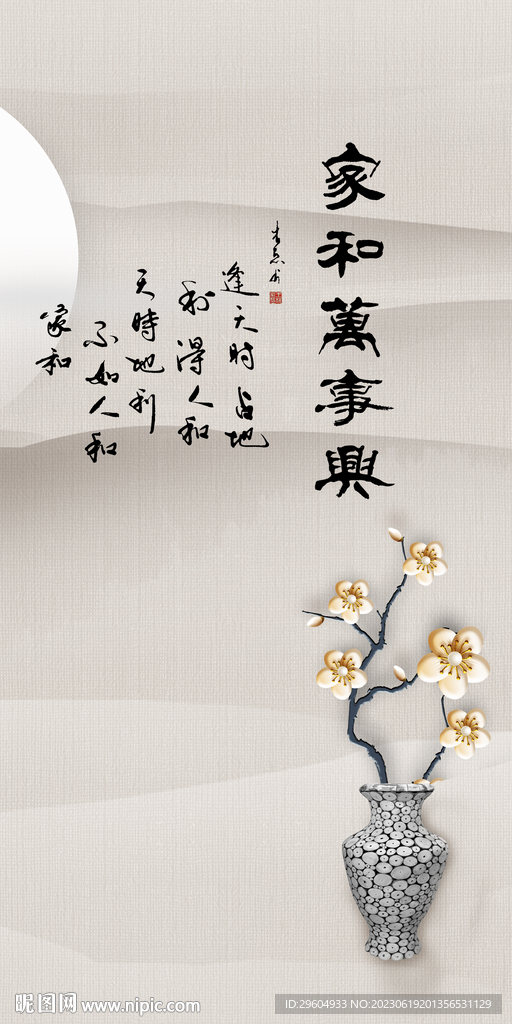 家和萬事興
逢天时占地
利得人和
天時地利
不如人和
家和
昵图网 www.nipic.com
ID:29604933 NO:20230619201356531129